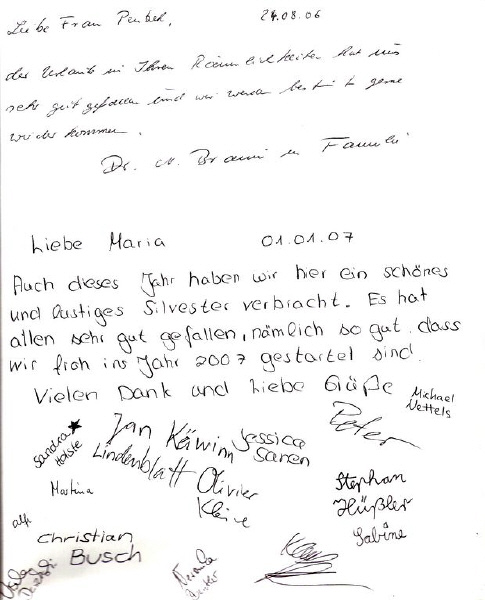 Liebe Frau 24.08.06
der Urlaub in Ihren Räumlichkeiten hat uns
sehr gut gefallen und wir werden bestimmt gerne
wieder kommen.
Dr. Familie
Liebe Maria 01.01.07
Auch dieses Jahr haben wir hier ein schönes
und lustiges Silvester verbracht. Es hat
allen sehr gut gefallen, nämlich so gut dass
wir froh ins Jahr 2007 gestartet sind.
Vielen Dank und Liebe Grüße
Michael
Nettels
Peter
Sandra
Jan
Lindenblatt
Jessica
Saren
Martina
Olivier
Kleine
Stephan
Hüßler
Sabine
Christian
Busch